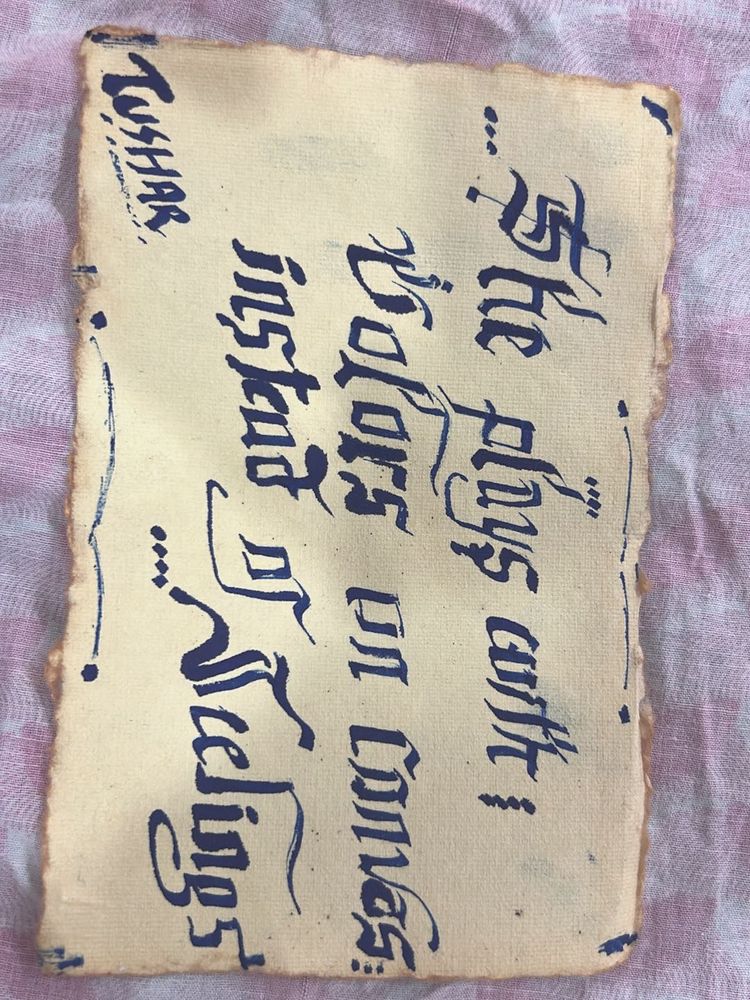 ... She plays with :
Colors on Canvas :
instead of
.... Feelings
TUSHAR